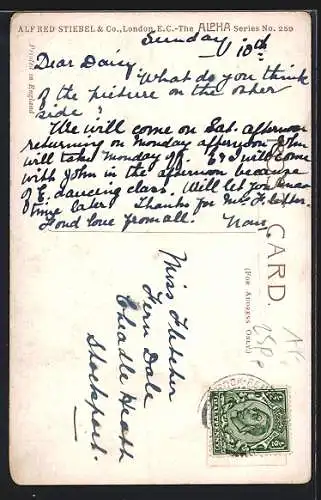 ALFRED STIEBEL & Co., London, E.C.-The ALPHA Series No. 259
Printed in England
Sunday 10th
Dear Daisy,
What do you think
of the picture on the other
side?
We will come on Sat. afternoon
returning on Monday afternoon John
will take Monday off. E & I will come
with John in the afternoon because
of E. dancing class. Will let you know
time later. Thanks for Mrs F letter.
Fond love from all.
CARD.
(FOR ADDRESS ONLY.)
Miss Fletcher
Fern Dale
Cheadle Heath
Stockport.